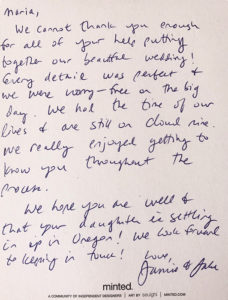 Maria,
We cannot thank you enough
for all of your help putting
together our beautiful wedding!
Every detail was perfect &
we were worry-free on the big
day. We had the time of our
lives & are still on cloud nine.
We really enjoyed getting to
know you throughout the
process.
We hope you are well &
that your daughter is settling
in up in Oregon! We look forward
to keeping in touch!
Love,
Jamie &
minted.
A COMMUNITY OF INDEPENDENT DESIGNERS | ART BY | MINTED.COM